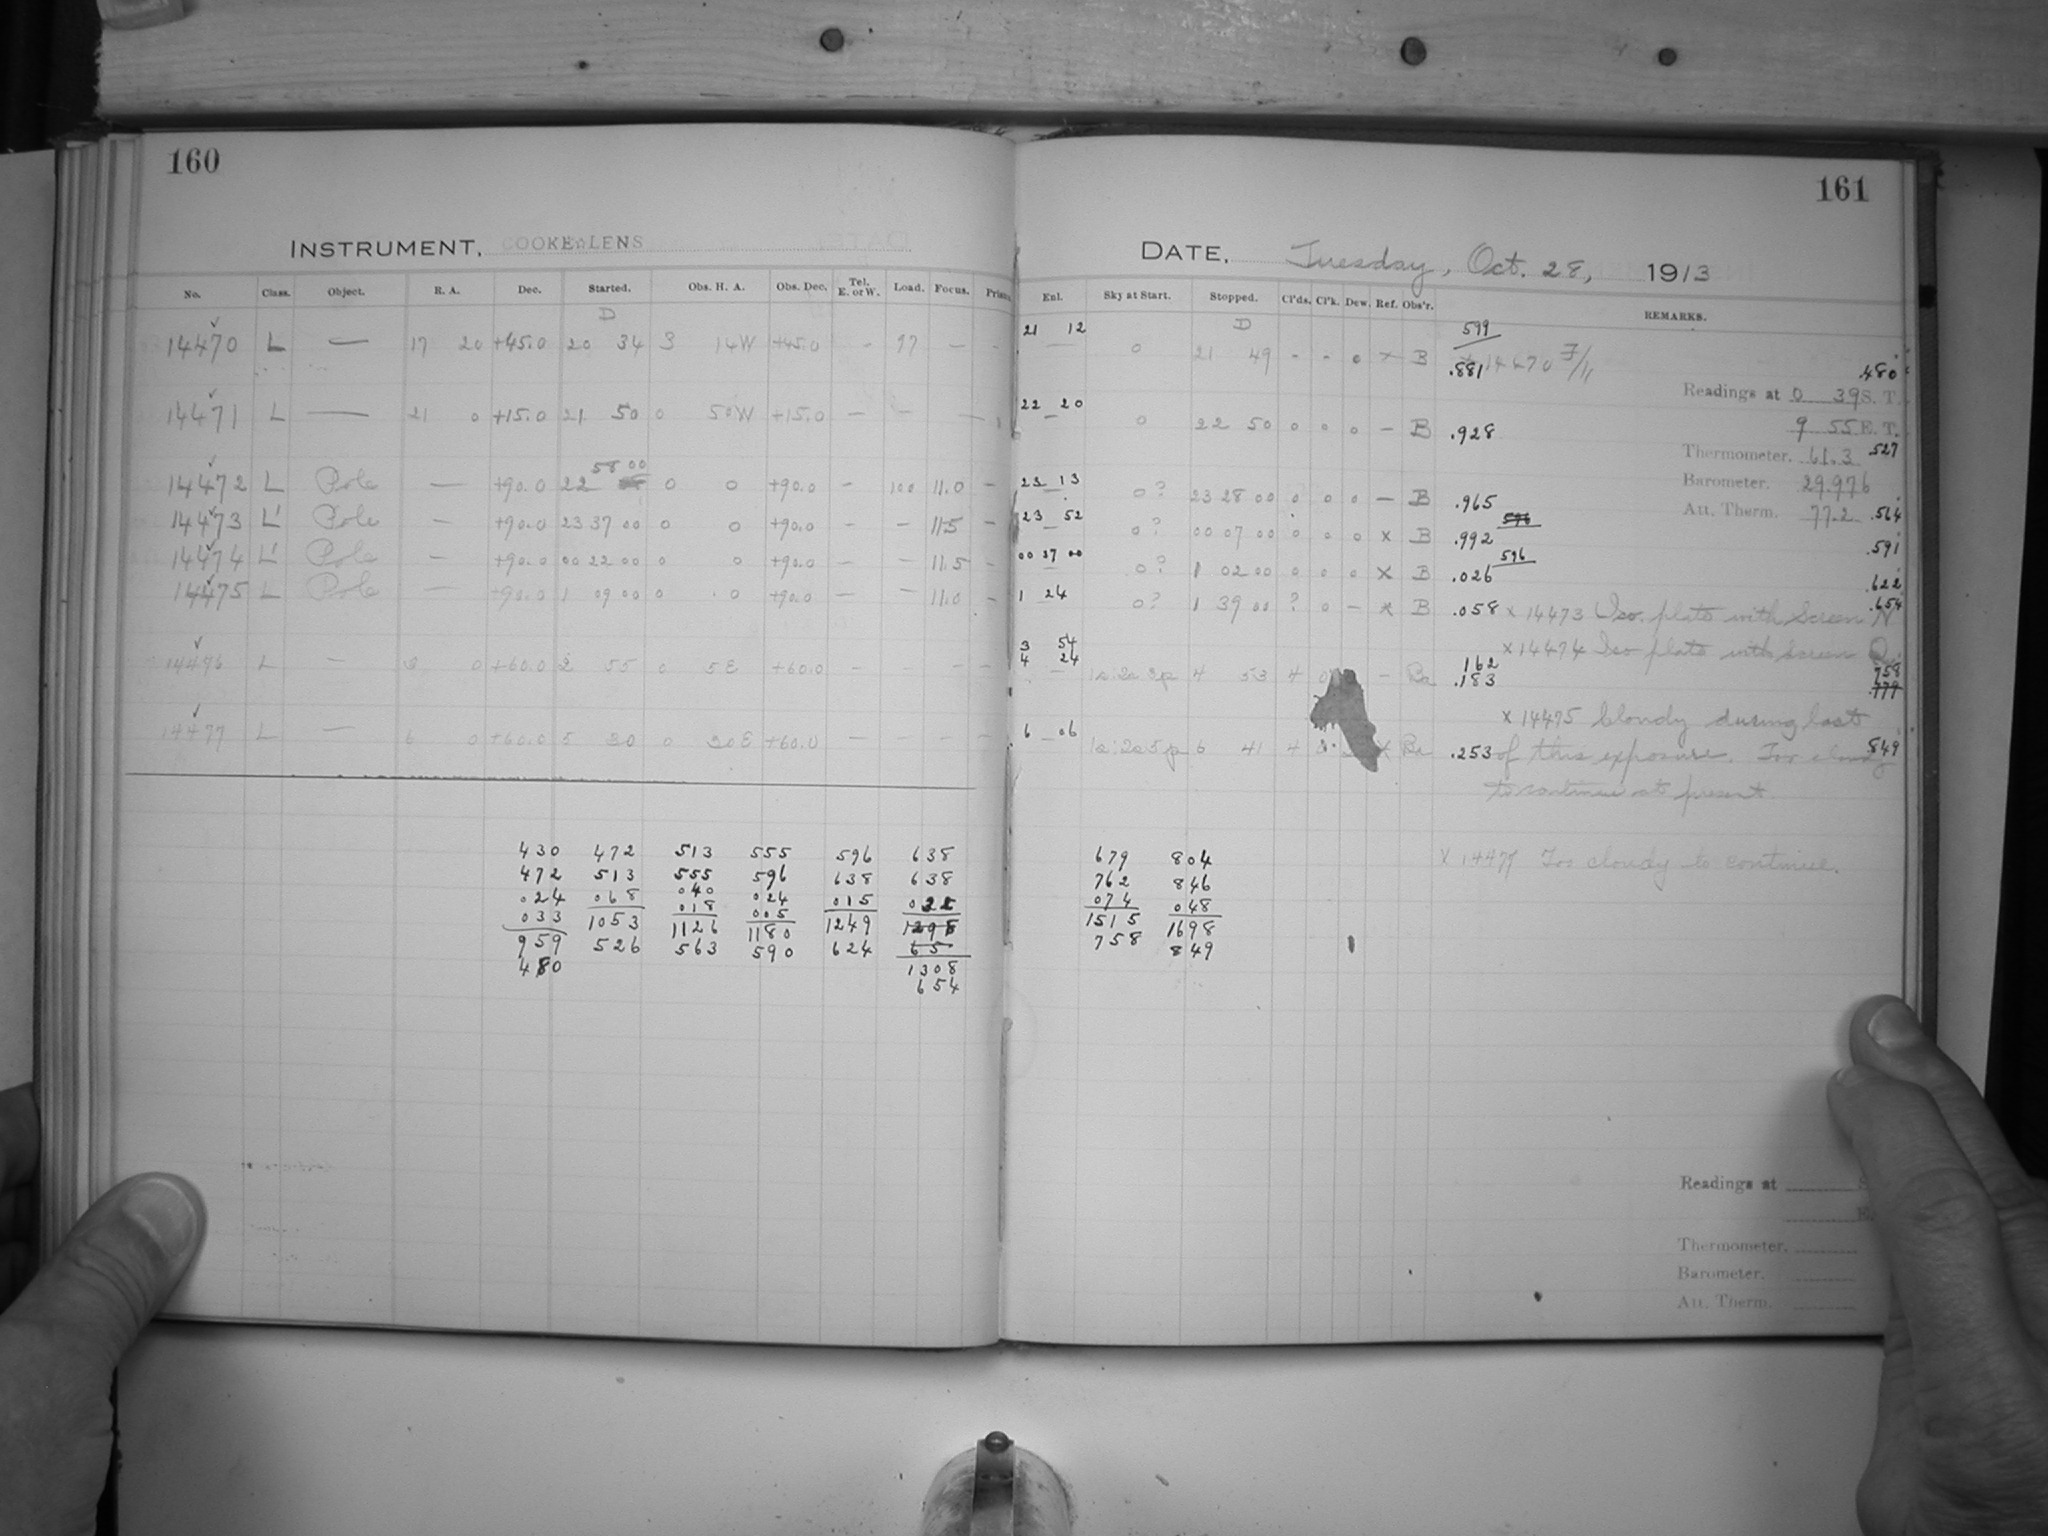 160
INSTRUMENT, COOKE LENS
No. Class. Object. R. A. Dec. Started. Obs. H. A. Obs. Dec. Tel. E. or W. Load. Focus. Prism.
D
14470 L — 17 20 +45.0 20 34 3 14W +45.0 - 77 — -
14471 L — 21 0 +15.0 21 50 0 50W +15.0 — — —
58 00
14472 L Pole — +90.0 22 0 0 +90.0 — 100 11.0 —
14473 L' Pole — +90.0 23 37 00 0 0 +90.0 — — 11.5 —
14474 L' Pole — +90.0 00 22 00 0 0 +90.0 — — 11.5 —
14475 L Pole — +90.0 1 09 00 0 0 +90.0 — — 11.0 —
14476 L — 3 0 +60.0 2 55 0 5E +60.0 — — — —
14477 L — 6 0 +60.0 5 30 0 30E +60.0 — — — —
430 472 513 555 596 638
472 513 555 596 638 638
024 068 040 024 015 032
033 1053 018 005 1249 1298
959 526 1126 1180 624 65
480 563 590 1308
654
161
DATE, Tuesday, Oct. 28, 1913
Enl. Sky at Start. Stopped. Cl'ds. Cl'k. Dew. Ref. Obs'r. REMARKS.
21 12 D 599
— 0 21 49 - - 0 x B .881 x 14470 F/11 .480
Readings at 0 39 S. T.
22 20
— 0 22 50 0 0 0 — B .928
9 55 E. T.
Thermometer. 61.3 .527
23 13 Barometer. 29.976
— 0? 23 28 00 0 0 0 — B .965
Att. Therm. 77.2 .564
23 52 596
— 0? 00 07 00 0 0 0 x B .992 .591
00 37 00 596
— 0? 1 02 00 0 0 0 x B .026 .622
1 24 0? 1 39 00 ? 0 — x B .058 x 14473 Iso. plate with Screen N .654
x 14474 Iso plate with Screen
3 54
4 24 1a 2a 3p 4 53 4 — Ba .162 758
.183 .779
x 14475 Cloudy during last
6 06 1a 2a 5p 6 41 4 x Ba .253 of this exposure. Too cloudy .849
to continue at present.
x 14477 Too cloudy to continue.
679 804
762 846
074 048
1515 1698
758 849
Readings at
Thermometer.
Barometer.
Att. Therm.